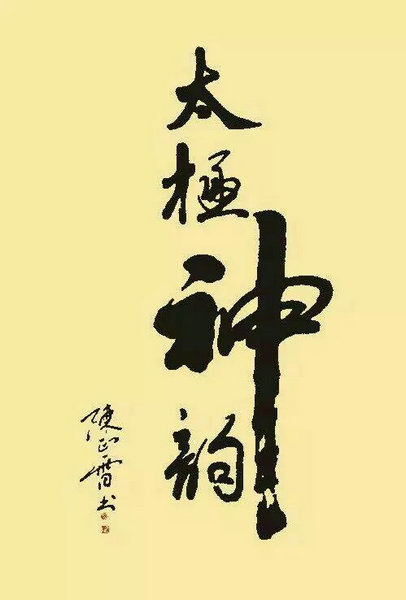 太極神韵
陳正雷书